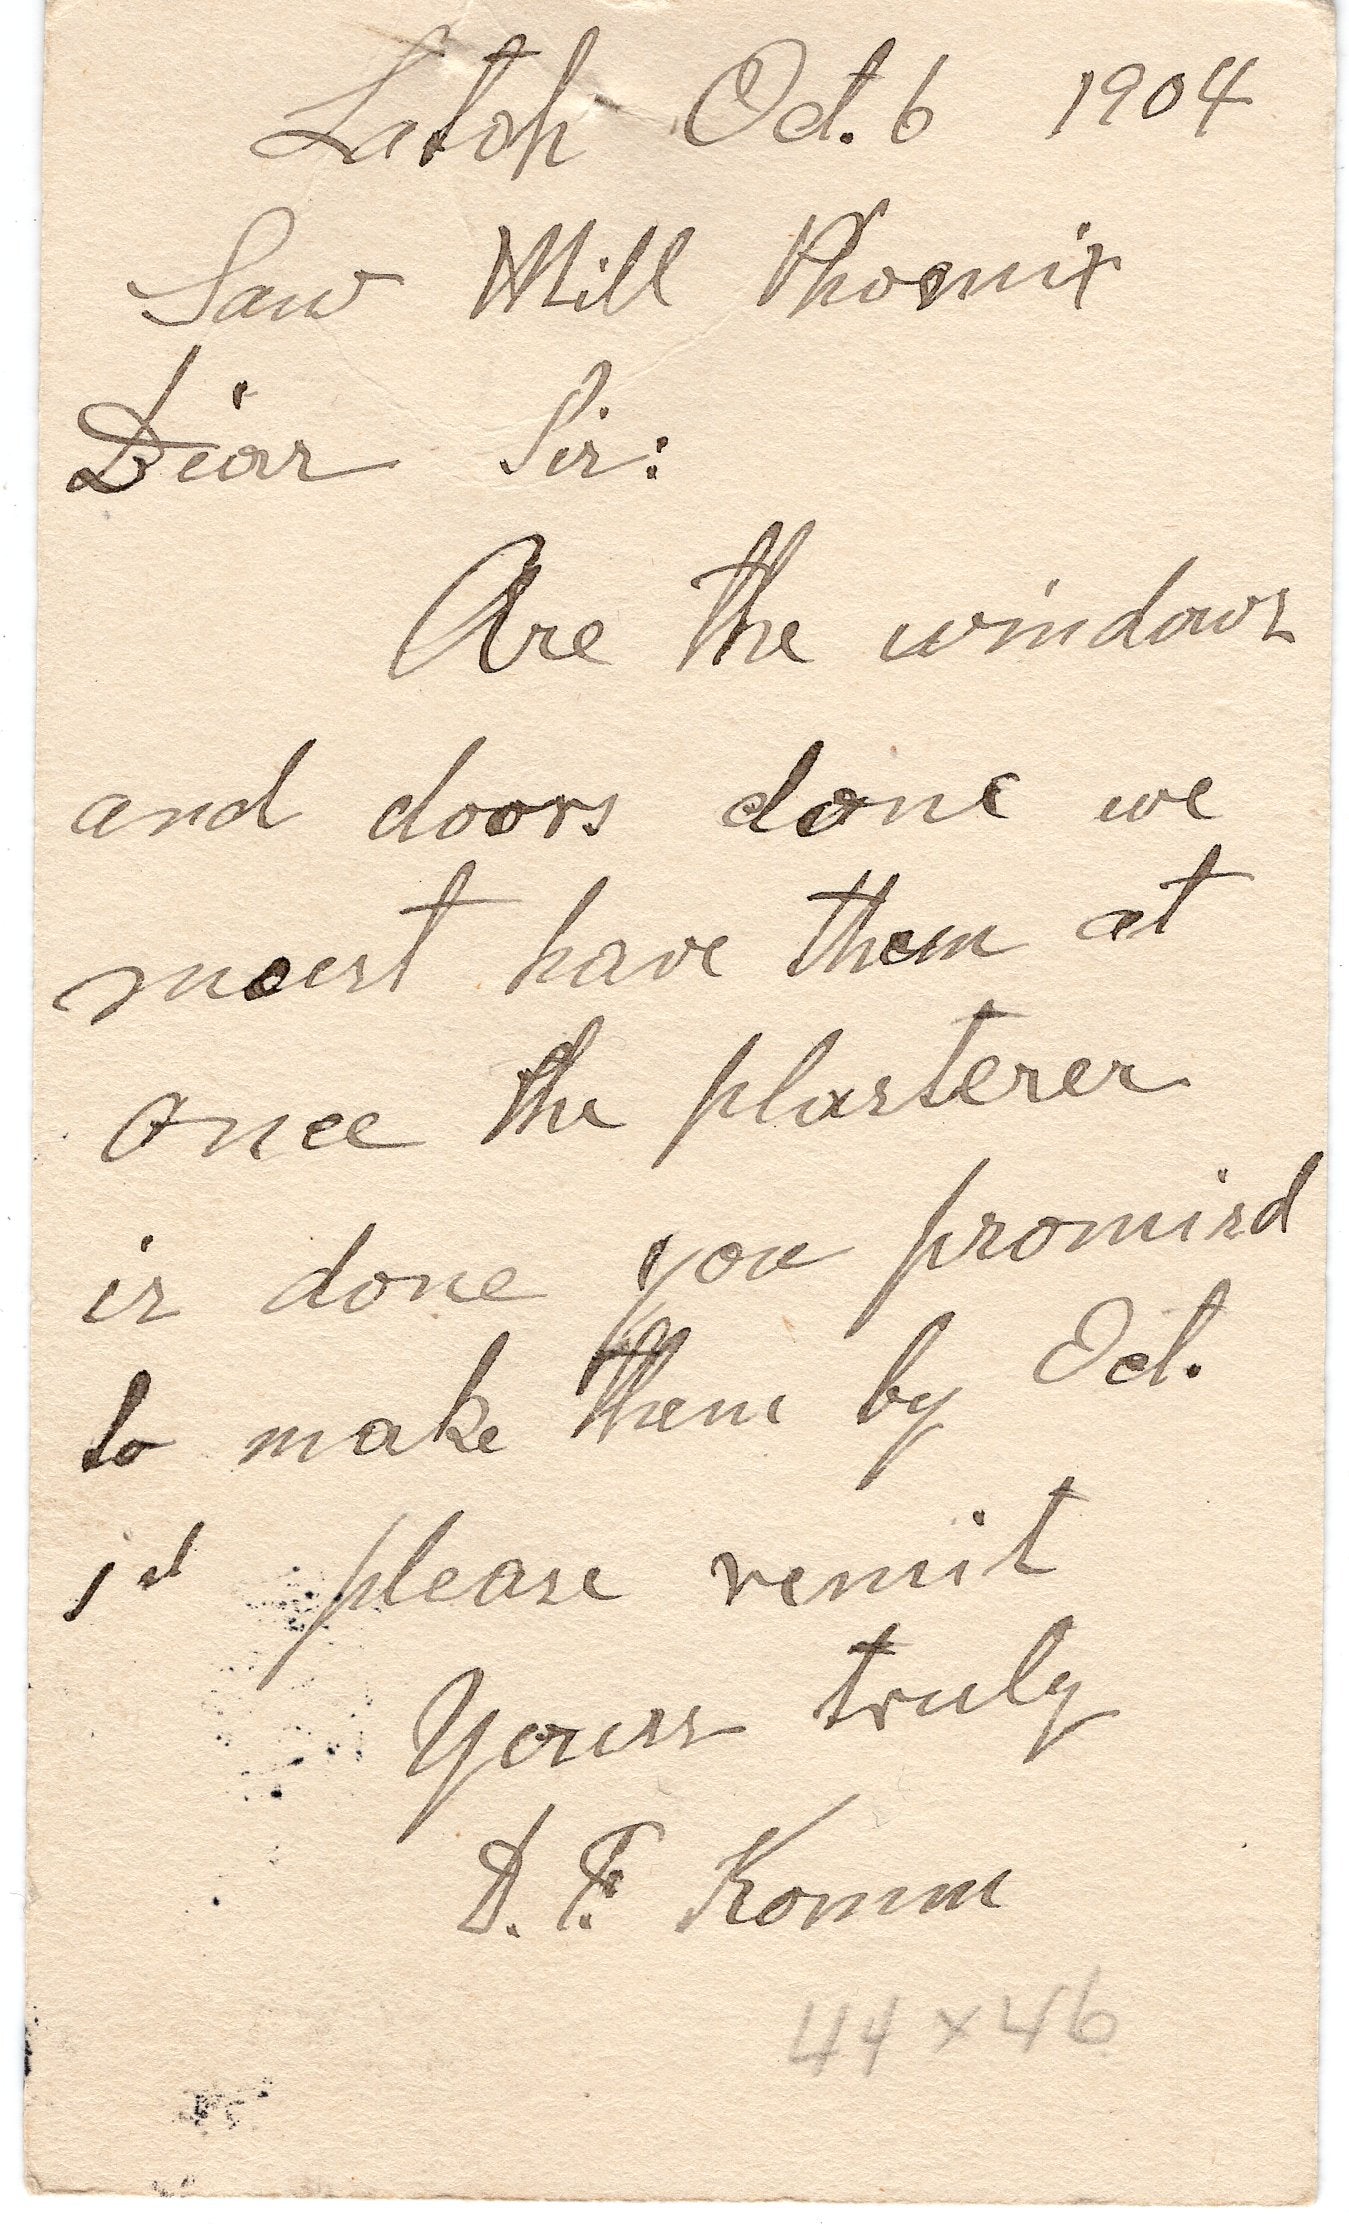 Latah Oct. 6 1904
Saw Mill Phoenix
Dear Sir:
Are the windows
and doors done we
must have them at
once the plasterer
is done you promisd
to make them by Oct.
1st please remit
Yours truly
D. F. Komm
44 x 46